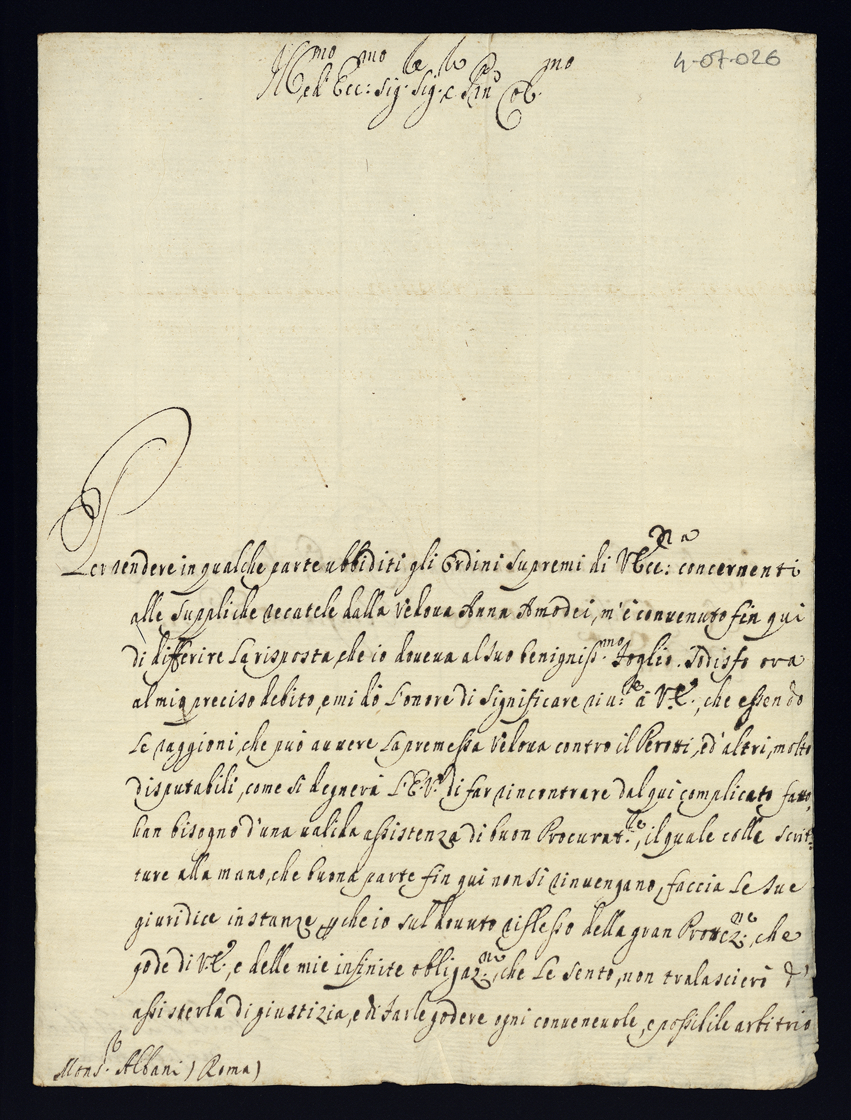 4-07-026
Ill.mo ed Ecc:mo Sig.re Sig.re e P.rone Col.mo
Per rendere in qualche parte ubbiditi gli Ordini supremi di V Ecc:za concernenti
alle suppliche recatele dalla Vedova Anna Amodei, m'è convenuto fin qui
di differire la risposta, che io doveva al suo benigniss.mo foglio. Sodisfo ora
al mio preciso debito, e mi dò l'onore di significare riv:te à V.E., che essendo
le raggioni, che può avvere la premessa Vedova contro il Perotti, ed'altri, molto
disputabili, come si degnerà l'E.V. di far rincontrare dal qui complicato fatto,
han bisogno d'una valida assistenza di buon Procurat:re, il quale colle scrit:
ture alla mano, che buona parte fin qui non si rinvengano, faccia le sue
giuridice instanze, che io sul dovuto riflesso della gran Protez:ne, che
gode di V.E., e delle mie infinite obligaz:ni, che le sento, non tralascierò d'
assisterla di giustizia, e di farle godere ogni convenevole, e possibile arbitrio
Mons.r Albani (Roma)